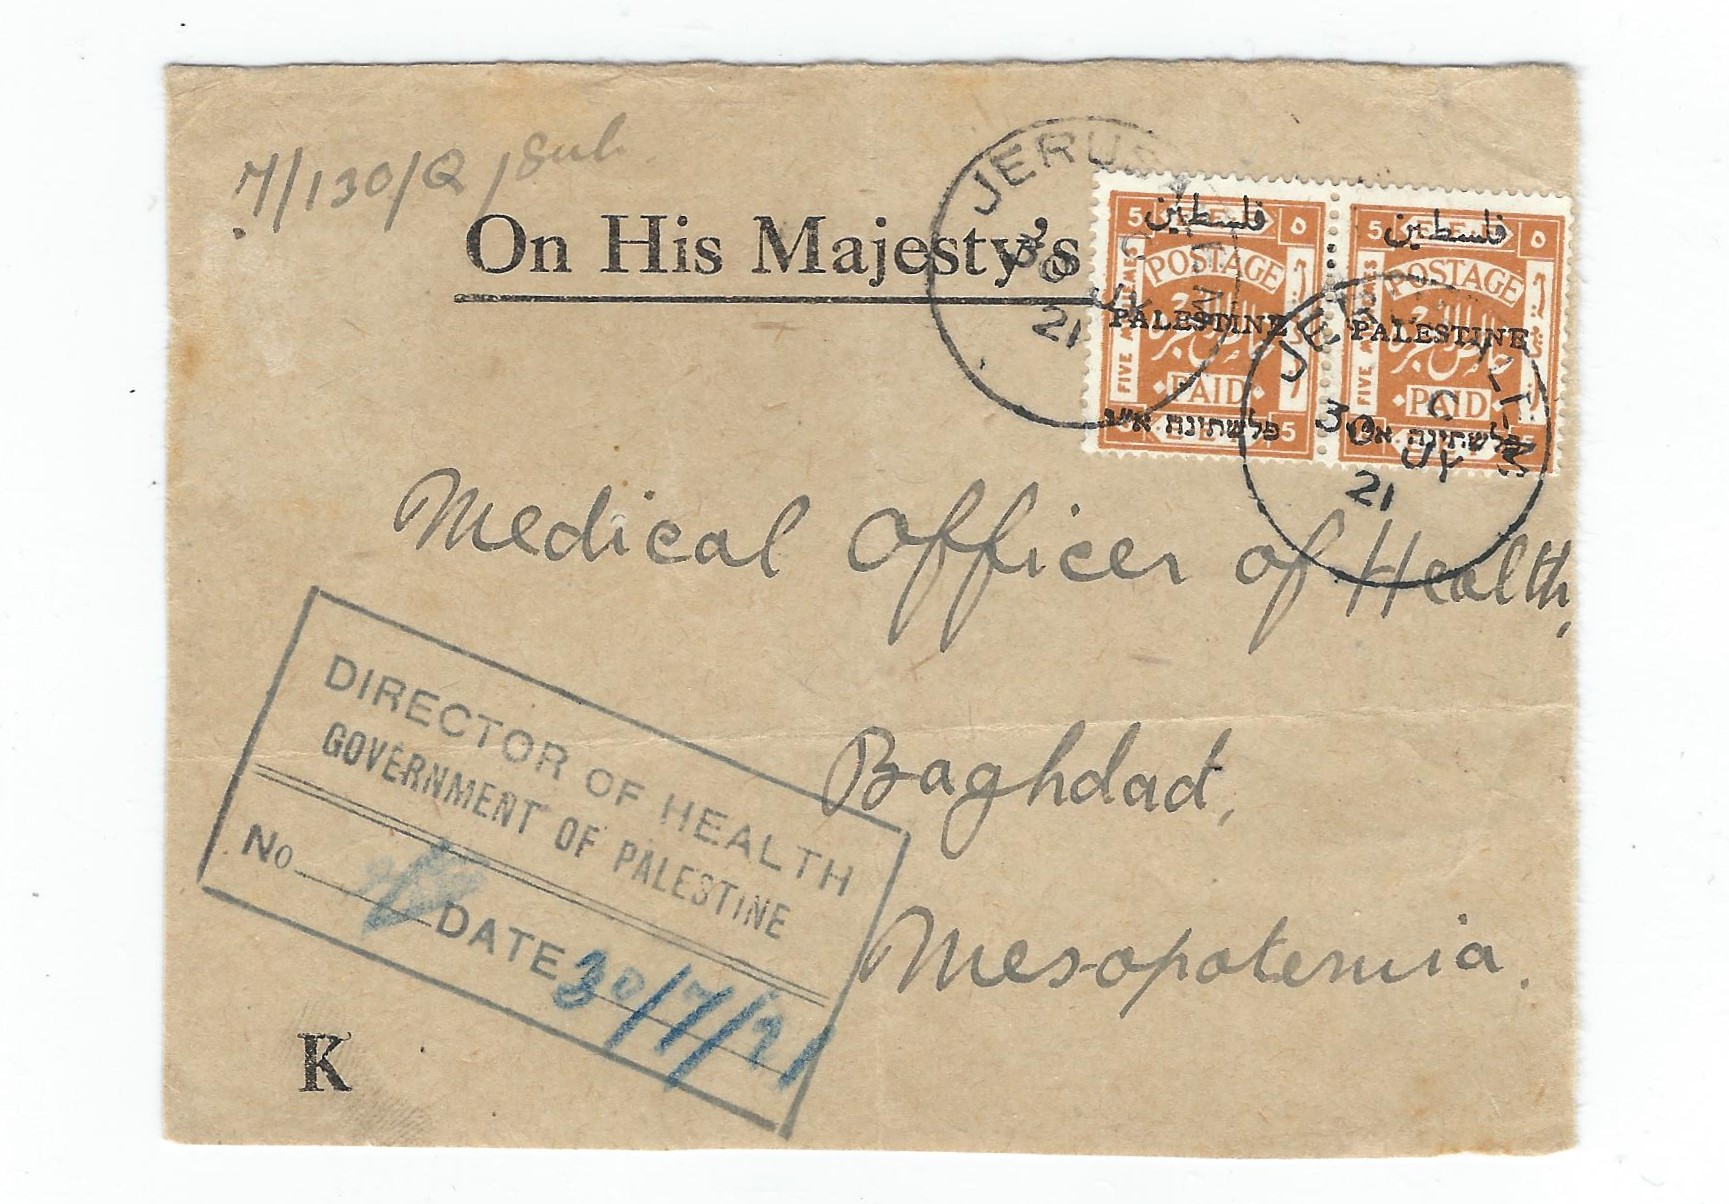 7/130/Q/Sub
On His Majesty's
JERUSALEM
30 JY
21
5 E.E.F. ٥
فلسطين
POSTAGE
PALESTINE
FIVE MILLIEMES
PAID
פלשתינה א״י
5 5
5 E.E.F. ٥
فلسطين
POSTAGE
PALESTINE
FIVE MILLIEMES
PAID
פלשתינה א״י
5 5
JERUSALEM
C
30 JY
21
Medical Officer of Health,
Baghdad,
Mesopotemia.
DIRECTOR OF HEALTH
GOVERNMENT OF PALESTINE
No DATE 30/7/21
K